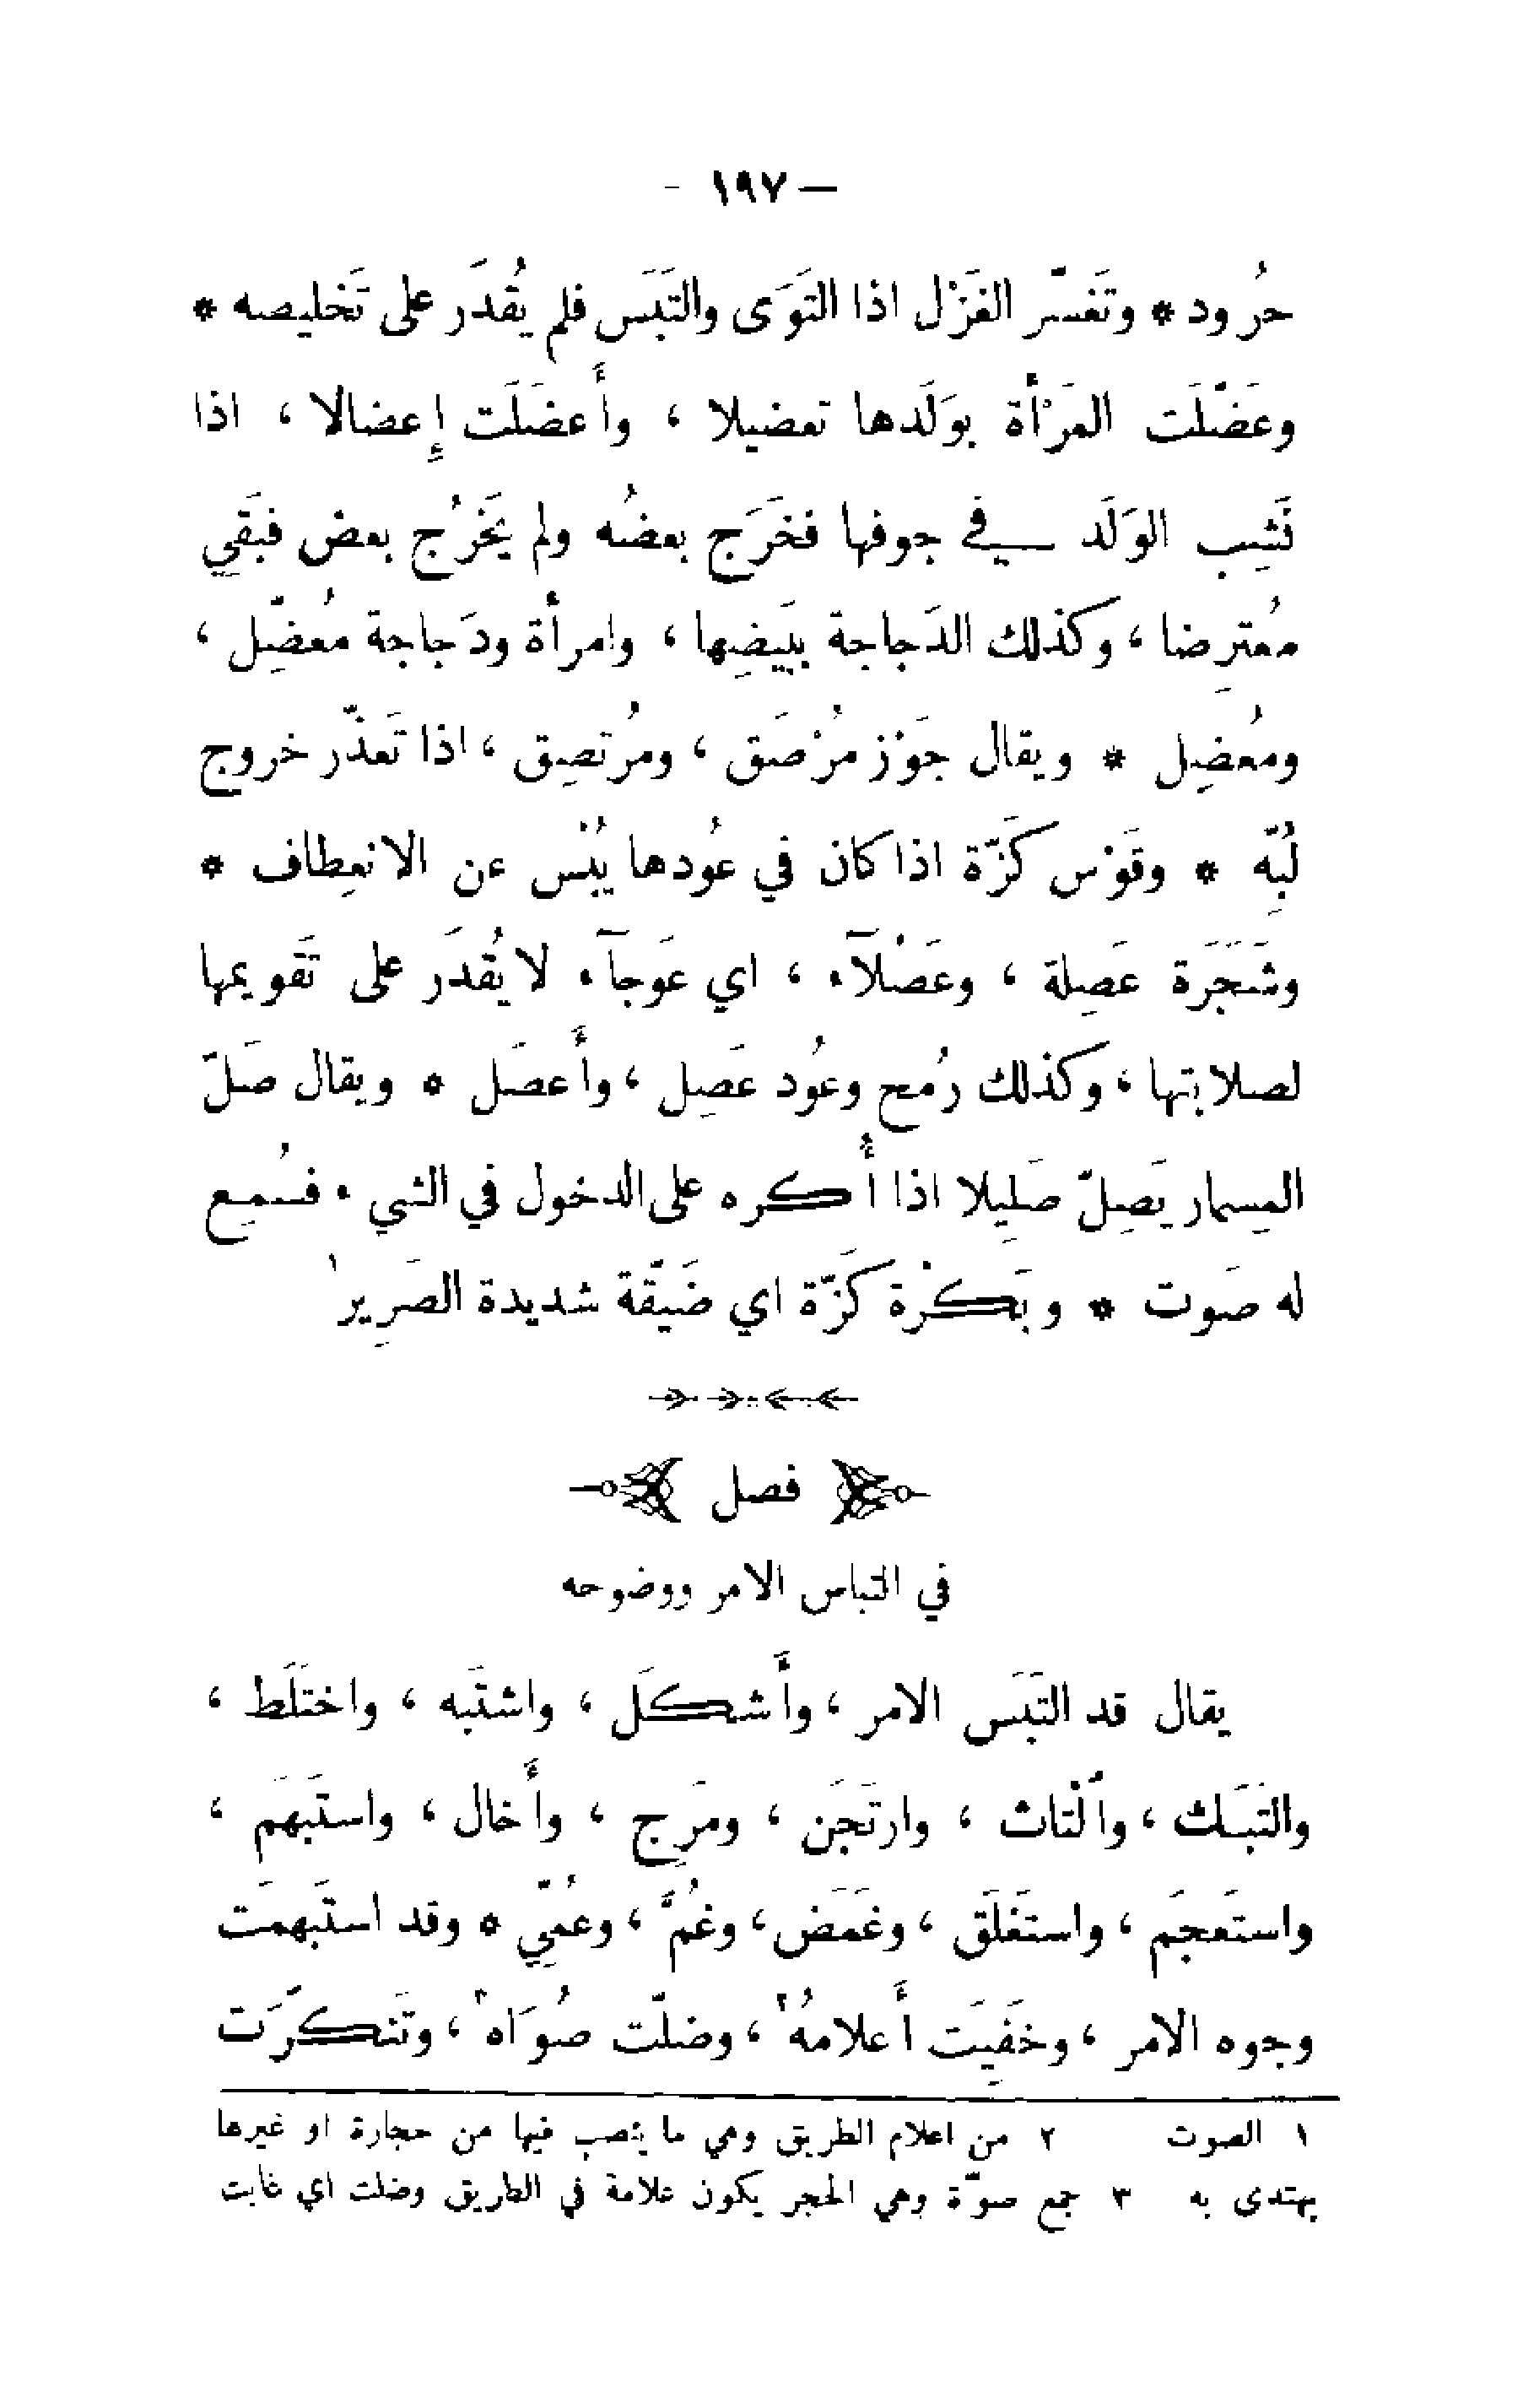 — ١٩٧ -
حُرود * وتَغسّر الغَزْل اذا التَوَى والتَبَس فلم يُقدَر على تَخليصه *
وعَضّلَت المَرْأة بوَلَدها تعضيلا ، وأَعضَلَت إِعضالا ، اذا
نَشِب الوَلَد في جوفها فخَرَج بعضُه ولم يَخرُج بعض فبَقَي
مُعترِضا ، وكذلك الدَجاجة ببَيضِها ، وامرأة ودَجاجة مُعضِّل ،
ومُعضِل * ويقال جَوْز مُرْصَق ، ومُرتصِق ، اذا تَعذّر خروج
لُبّهِ * وقَوْس كَزّة اذا كان في عُودها يُبْس عن الانعِطاف *
وشَجَرة عَصِلة ، وعَصْلآء ، اي عَوجآء لا يُقدَر على تَقويمها
لصلابتها ، وكذلك رُمح وعُود عَصِل ، وأَعصَل * ويقال صَلّ
المِسمار يَصِلّ صَلِيلا اذا أُكره على الدخول في الشيء فسُمِع
له صَوت * وبَكْرة كَزّة اي ضَيّقة شديدة الصَرِير١
فصل
في التباس الامر ووضوحه
يقال قد التَبَس الامر ، وأَشكَل ، واشتَبه ، واختَلَط ،
والتَبَك ، وٱلْتاث ، وارتَجَن ، ومَرِج ، وأَخال ، واستَبهَم ،
واستَعجَم ، واستَغلَق ، وغَمَض ، وغُمَّ ، وعُمّي * وقد استَبهمَت
وجوه الامر ، وخَفِيَت أَعلامُه٢ ، وضلّت صُوَاه٣ ، وتَنكّرَت
١ الصوت ٢ من اعلام الطريق وهي ما ينصب فيها من حجارة او غيرها
يهتدى به ٣ جمع صوّة وهي الحجر يكون علامة في الطريق وضلت اي غابت